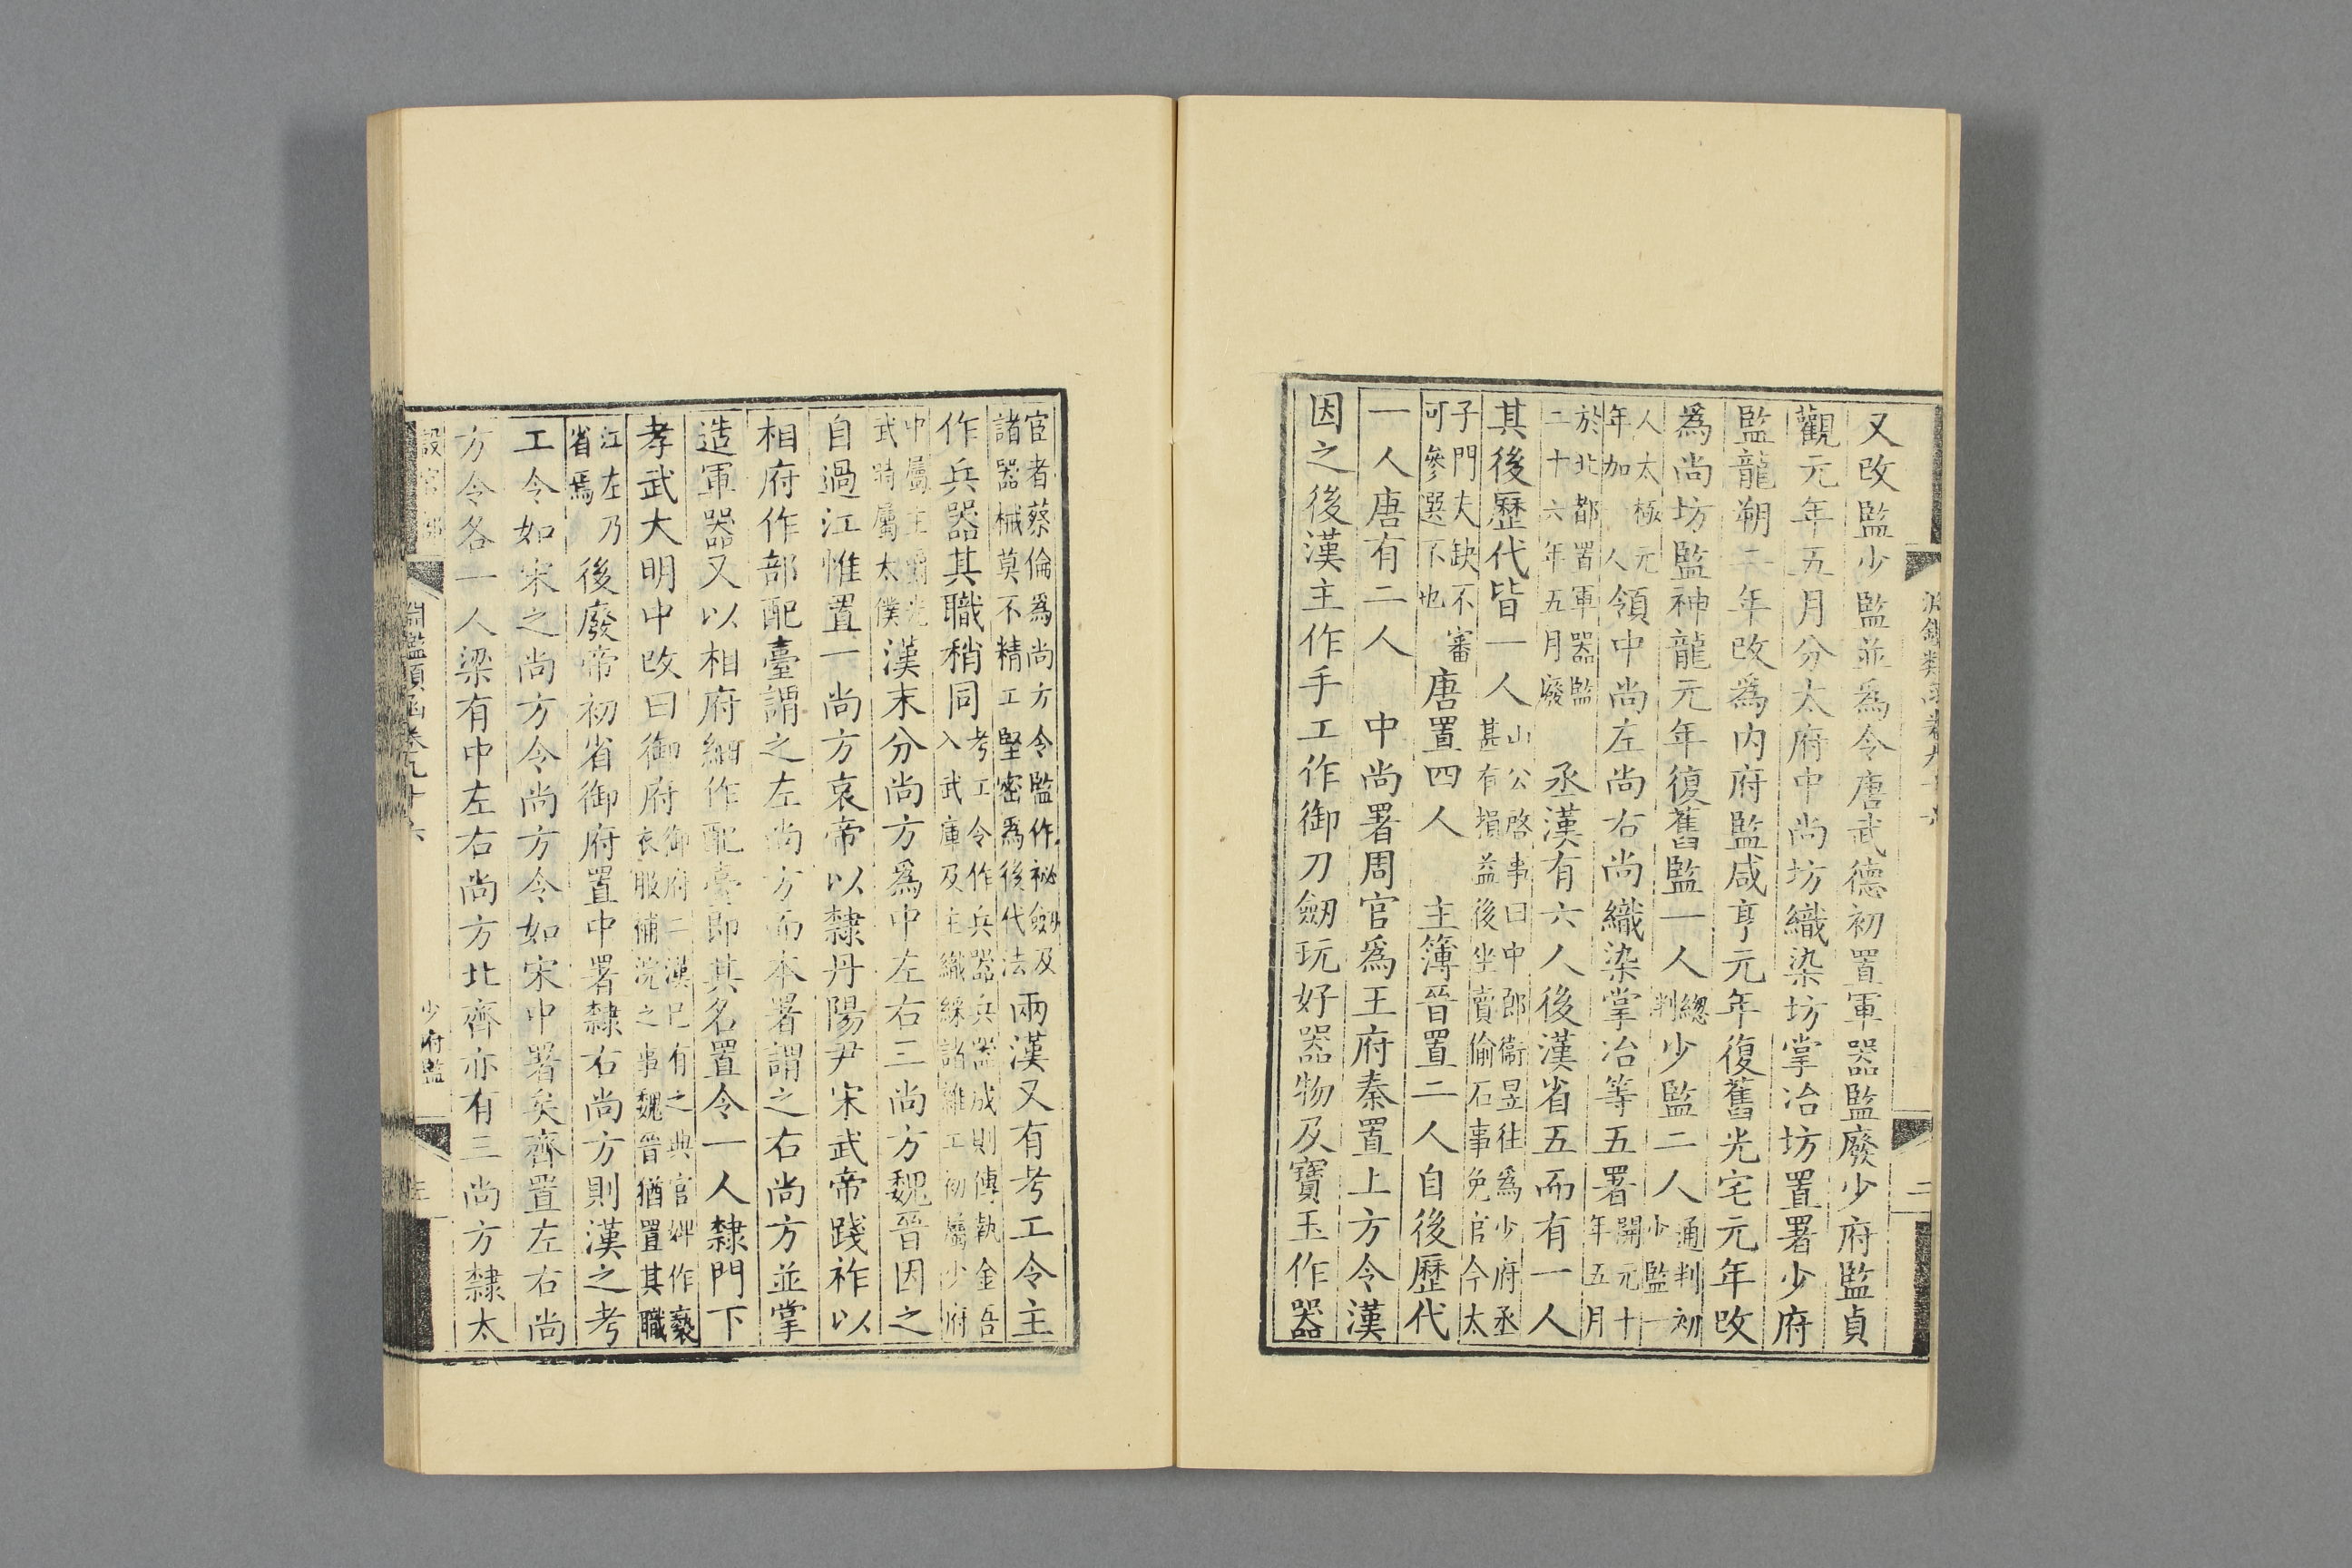 又改監少監並為令唐武德初置軍器監廢少府監貞
觀元年五月分太府中尚坊織染坊掌冶坊置署少府
監龍朔二年改為內府監咸亨元年復舊光宅元年改
為尚坊監神龍元年復舊監一人總判少監二人通判初少監一
人太極元年加一人領中尚左尚右尚織染掌冶等五署開元十年五月
於北都置軍器監二十六年五月廢丞漢有六人後漢省五而有一人
其後歷代皆一人山公啓事曰中郎衞昱往為少府丞甚有損益後坐賣偷石事免官今太
子門大夫缺不審可參選不也唐置四人主簿晉置二人自後歷代
一人唐有二人中尚署周官為王府秦置上方令漢
因之後漢主作手工作御刀劒玩好器物及寶玉作器
宦者蔡倫為尚方令監作祕劒及諸器械莫不精工堅密為後代法兩漢又有考工令主
作兵器其職稍同考工令作兵器兵器成則傳執金吾入武庫及主織綵諸雜工初屬少府
中屬主爵光武時屬太僕漢末分尚方為中左右三尚方魏晉因之
自過江惟置一尚方哀帝以隸丹陽尹宋武帝踐祚以
相府作部配臺謂之左尚方而本署謂之右尚方並掌
造軍器又以相府細作配臺即其名置令一人隸門下
孝武大明中改曰御府御府二漢已有之典官婢作褻衣服補浣之事魏晉猶置其職
江左乃省焉後廢帝初省御府置中署隸右尚方則漢之考
工令如宋之尚方令尚方令如宋中署矣齊置左右尚
方令各一人梁有中左右尚方北齊亦有三尚方隸太
淵鑑類函卷九十六
少府監